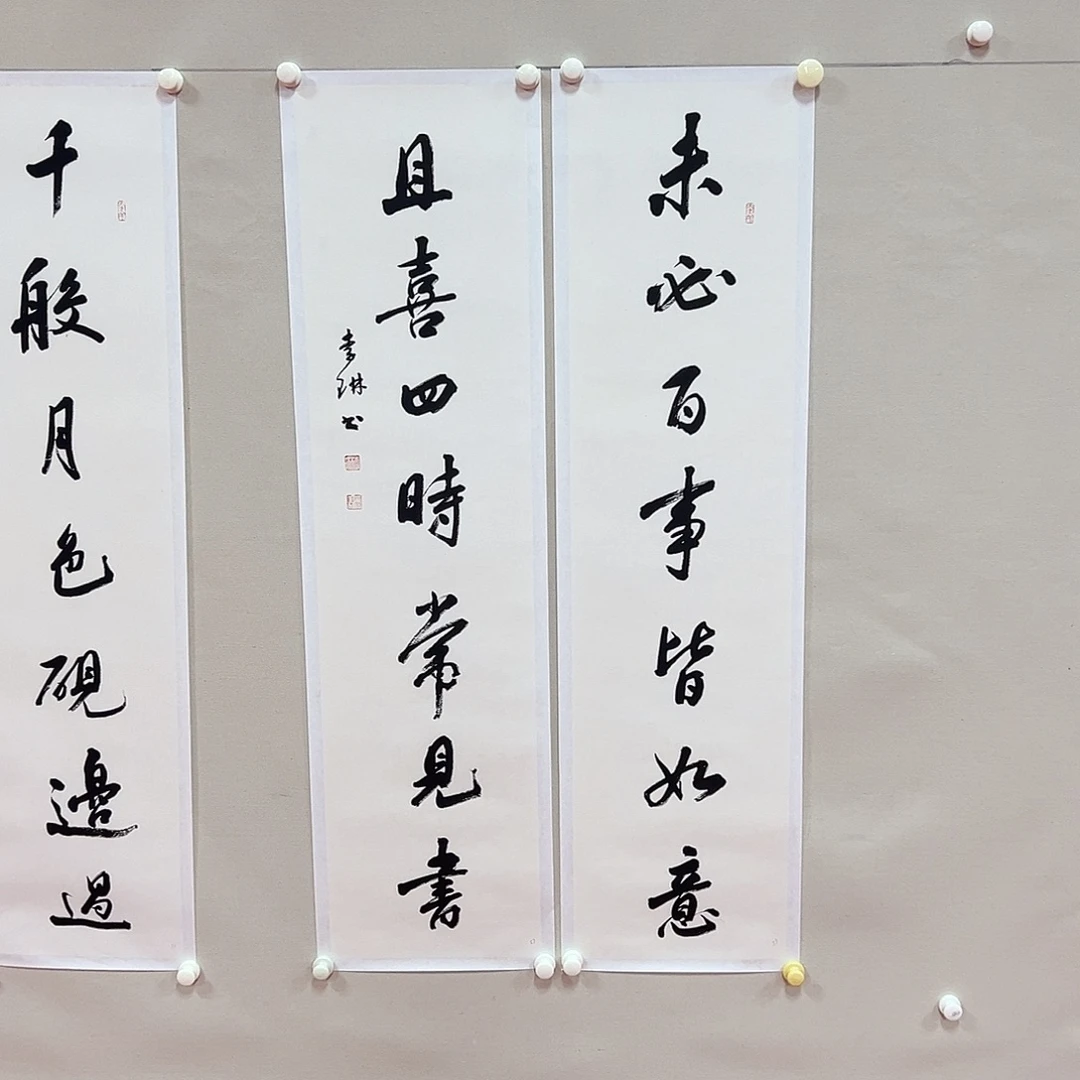 未必百事皆如意
且喜四時常見書
李琳书
千般月色硯邊過